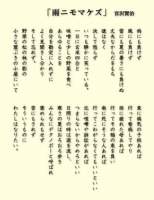 「雨ニモマケズ」 宮沢賢治
雨にも負けず
風にも負けず
雪にも夏の暑さにも負けぬ
丈夫なからだをもち
慾はなく
決して怒らず
いつも静かに笑っている
一日に玄米四合と
味噌と少しの野菜を食べ
あらゆることを
自分を勘定に入れずに
よく見聞きし分かり
そして忘れず
野原の松の林の陰の
小さな萱ぶきの小屋にいて
東に病気の子供あれば
行って看病してやり
西に疲れた母あれば
行ってその稲の束を負い
南に死にそうな人あれば
行ってこわがらなくてもいいといい
北に喧嘩や訴訟があれば
つまらないからやめろといい
日照りの時は涙を流し
寒さの夏はおろおろ歩き
みんなにデクノボーと呼ばれ
褒められもせず
苦にもされず
そういうものに
わたしはなりたい